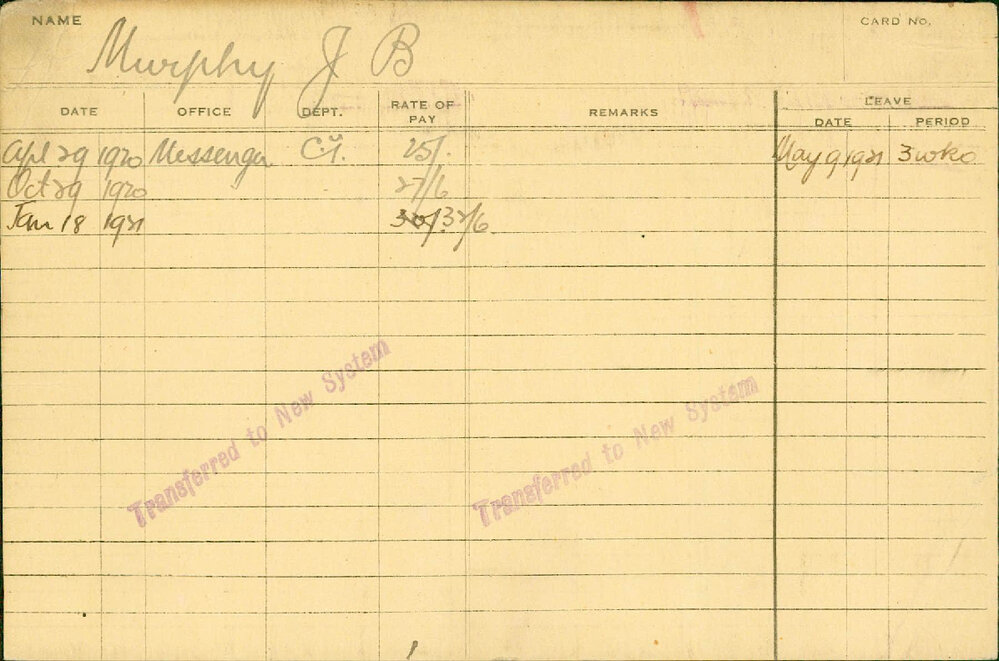 NAME Murphy J B CARD No.
DATE OFFICE DEPT. RATE OF PAY REMARKS LEAVE DATE PERIOD
Apl 29 1920 Messenger 25/. May 9 1921 3 wks
Oct 29 1920 27/6
Jan 18 1921 30/. 32/6.
Transferred to New System
Transferred to New System